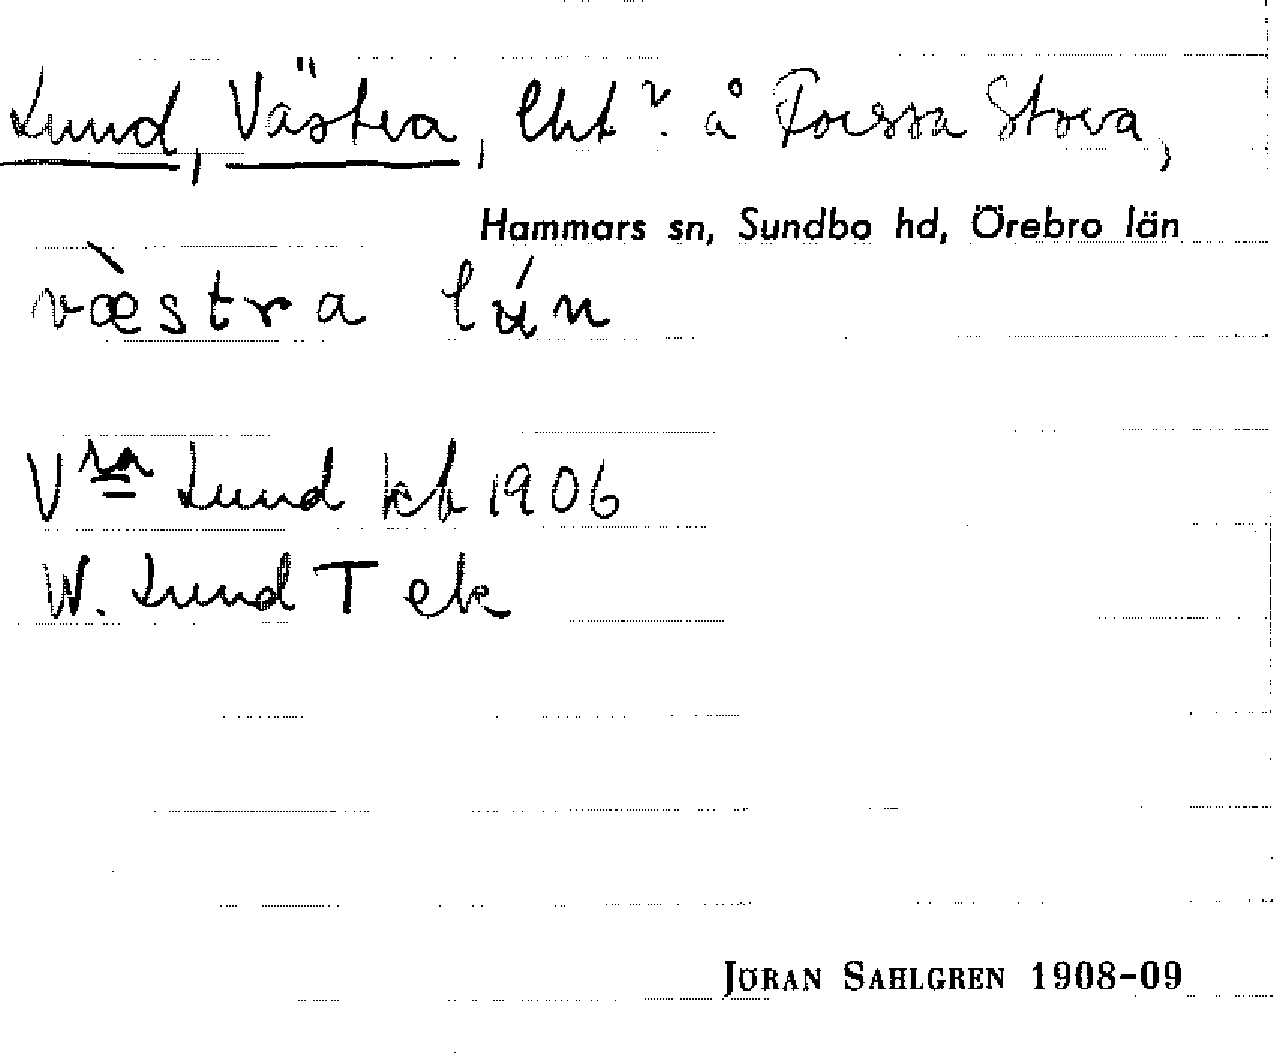 Lund, Västra, lht ? å Forssa Stora,
Hammars sn, Sundbo hd, Örebro län
væ̀stra lún
Vra Lund kb 1906
W. Lund T ek
JÖRAN SAHLGREN 1908-09